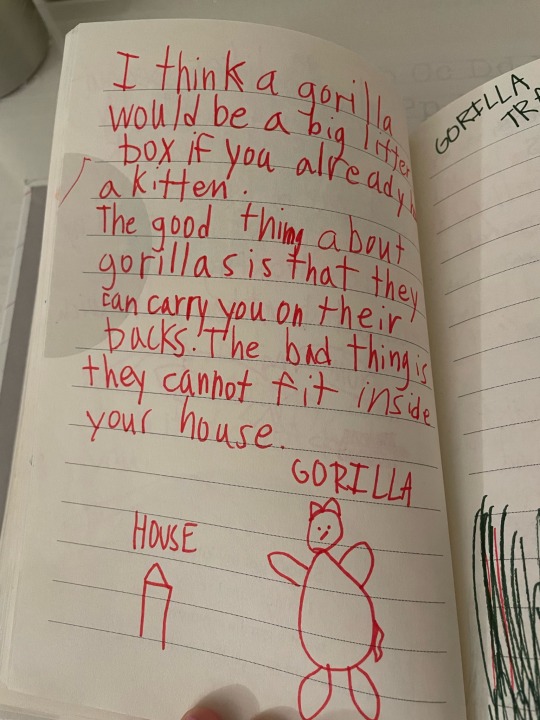 I think a gorilla
would be a big litter
box if you already
a kitten.
The good thing about
gorillas is that they
can carry you on their
backs. The bad thing is
they cannot fit inside
your house.
GORILLA
HOUSE
GORILLA